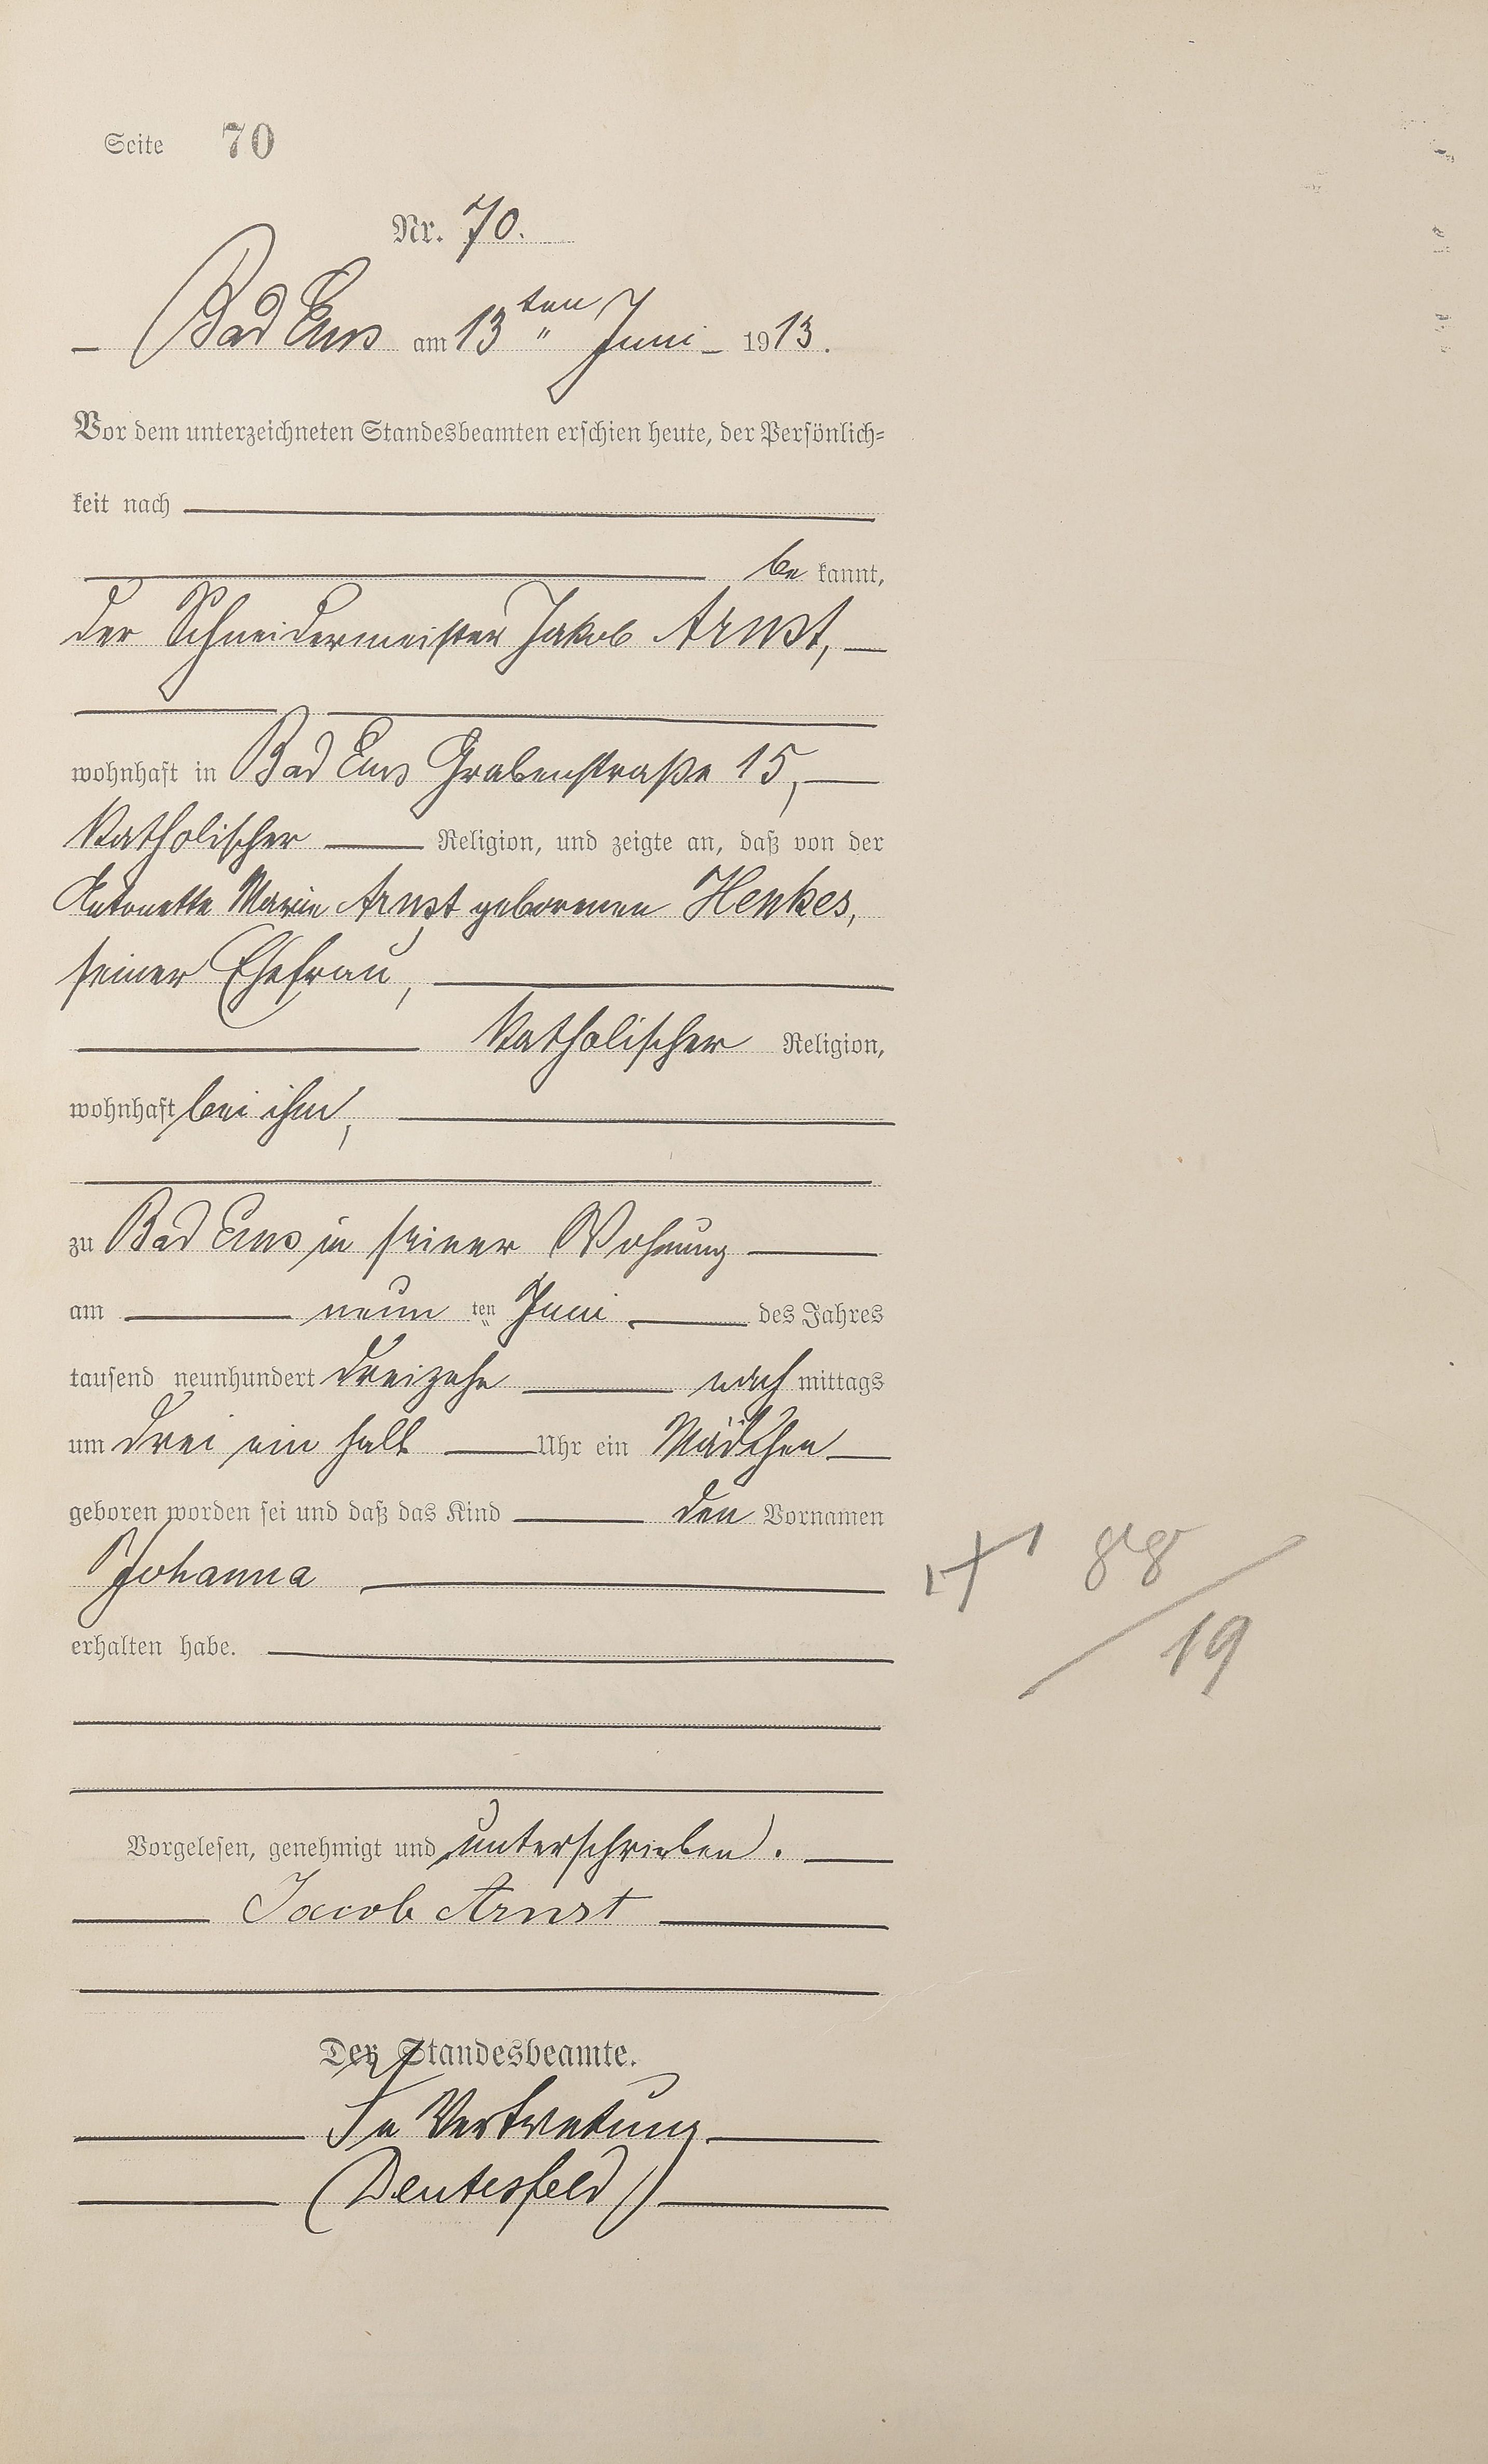 Seite 70
Nr. 70.
Bad Ems am 13ten Juni 1913.
Vor dem unterzeichneten Standesbeamten erschien heute, der Persönlich-
keit nach
be kannt,
der Schneidermeister Jakob Arnst,
wohnhaft in Bad Ems Grabenstraße 15,
katholischer Religion, und zeigte an, daß von der
Antonette Marie Arnst geborenen Henkes,
seiner Ehefrau,
katholischer Religion,
wohnhaft bei ihm,
zu Bad Ems in seiner Wohnung
am neun ten Juni des Jahres
tausend neunhundert dreizehn nach mittags
um drei ein halb Uhr ein Mädchen
geboren worden sei und daß das Kind den Vornamen
Johanna
erhalten habe.
88
19
Vorgelesen, genehmigt und unterschrieben.
Jacob Arnst
Der Standesbeamte.
In Vertretung
(Deutesfeld)